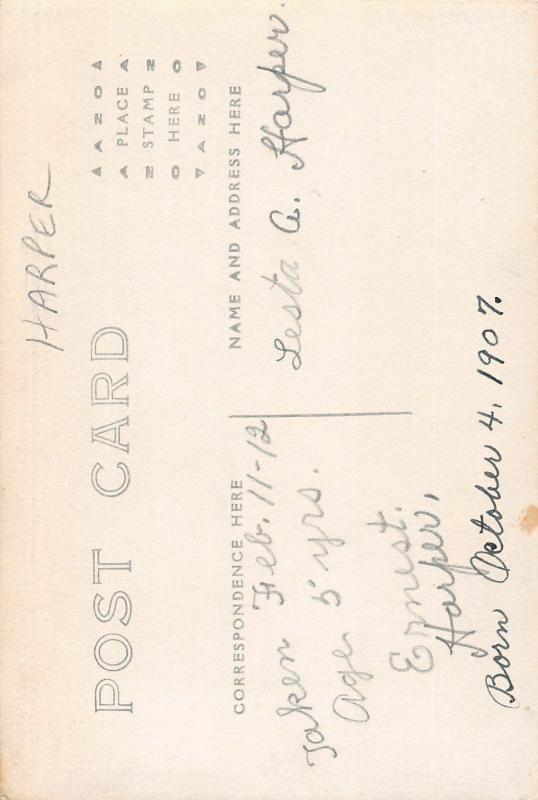 HARPER
POST CARD
AZO
PLACE
STAMP
HERE
AZO
CORRESPONDENCE HERE
NAME AND ADDRESS HERE
Taken Feb. 11-12
Age 5 yrs.
Ernest.
Harper,
Born October 4, 1907.
Lesta A. Harper